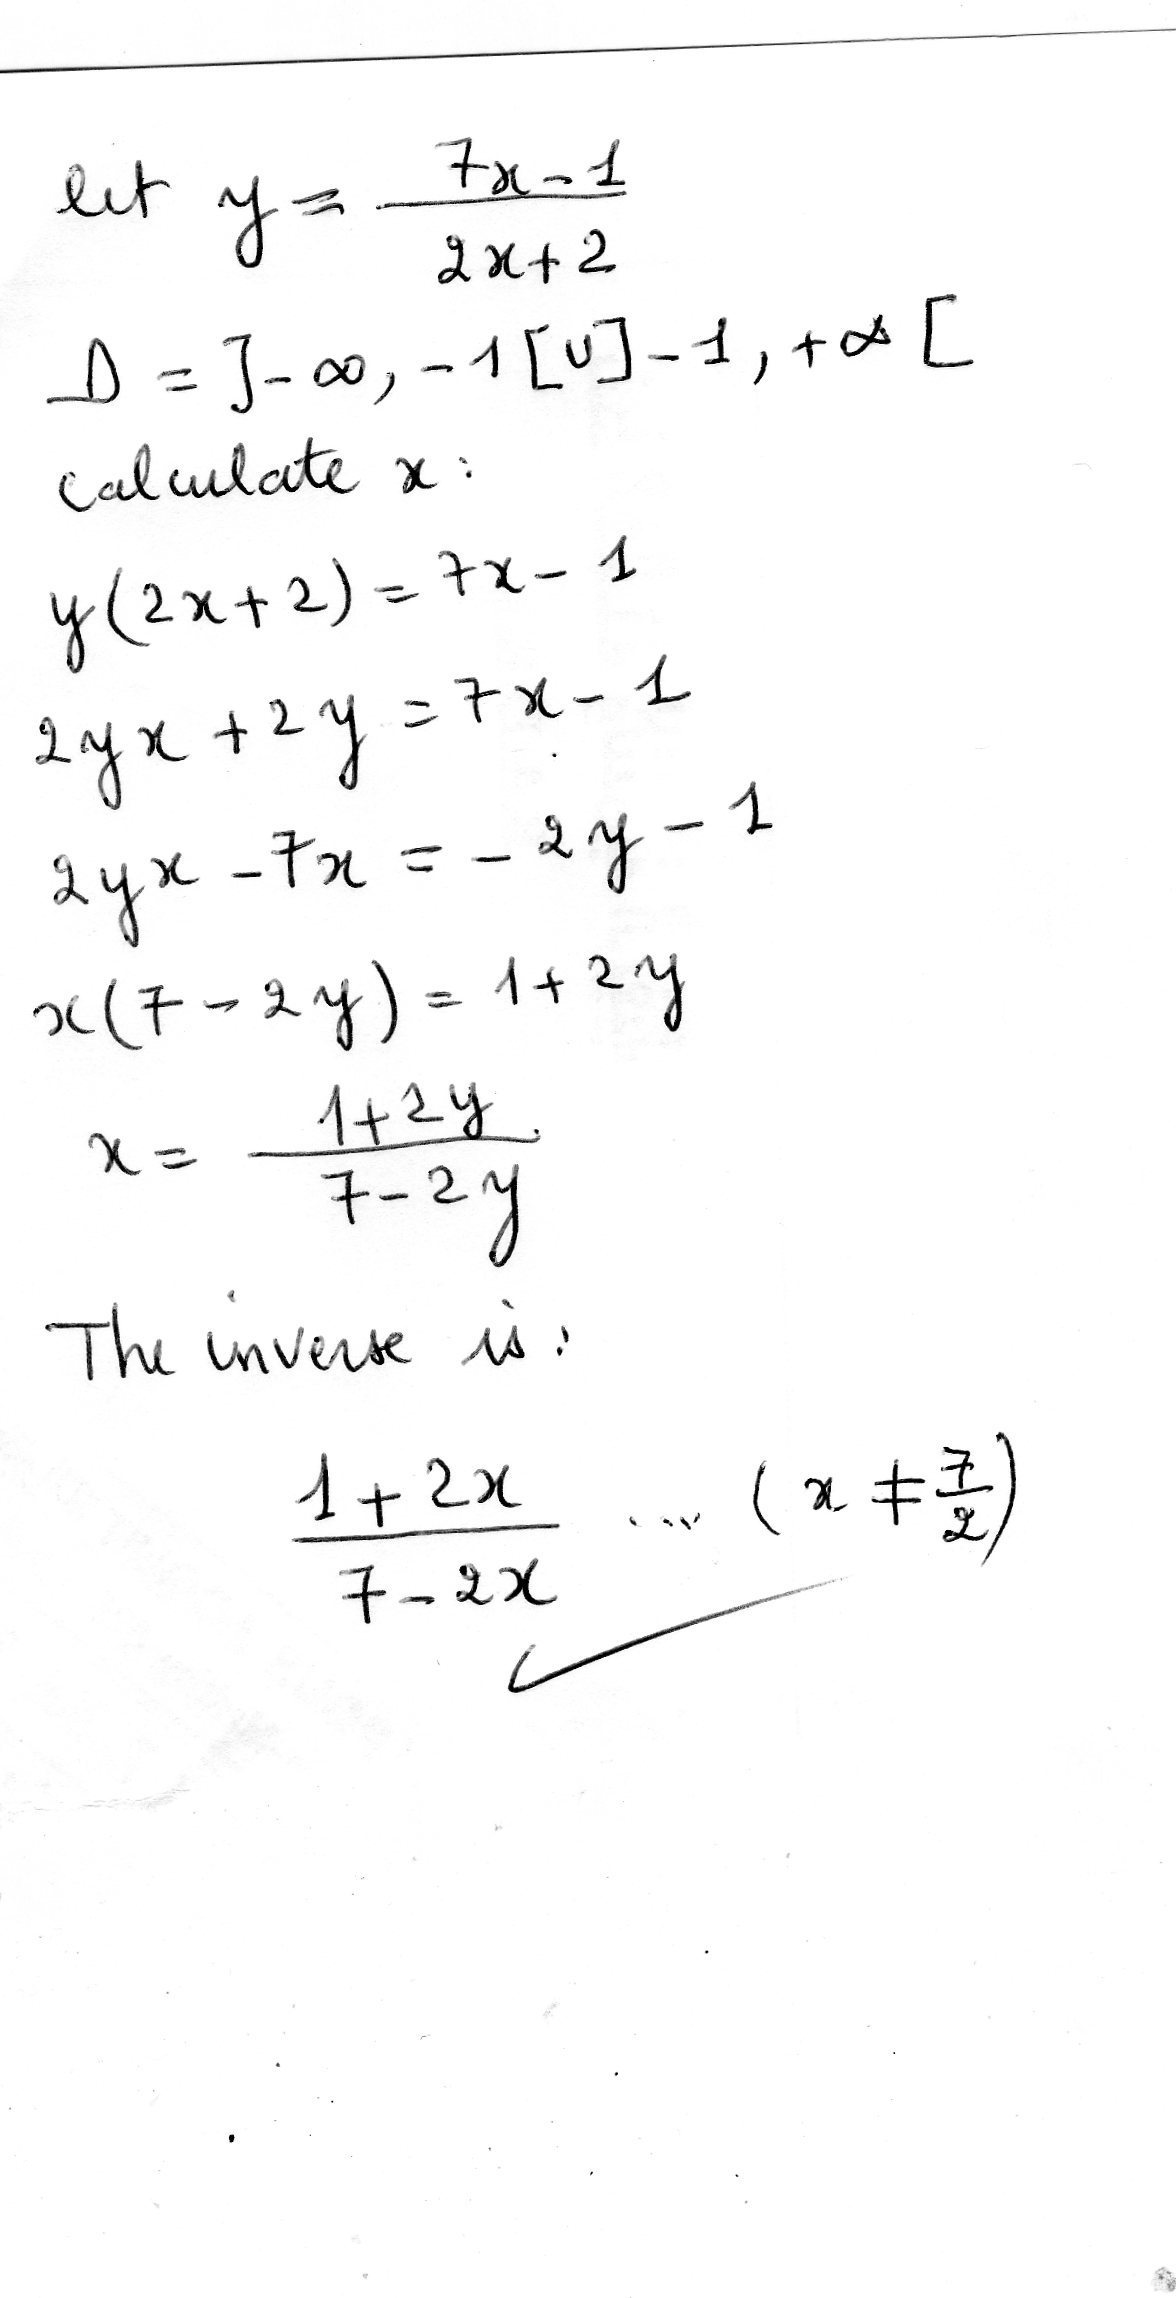 let y = (7x - 1)/(2x + 2)
D = ]-∞, -1[ ∪ ]-1, +∞[
calculate x:
y(2x + 2) = 7x - 1
2yx + 2y = 7x - 1
2yx - 7x = - 2y - 1
x(7 - 2y) = 1 + 2y
x = (1 + 2y)/(7 - 2y)
The inverse is:
(1 + 2x)/(7 - 2x) ... (x ≠ 7/2)